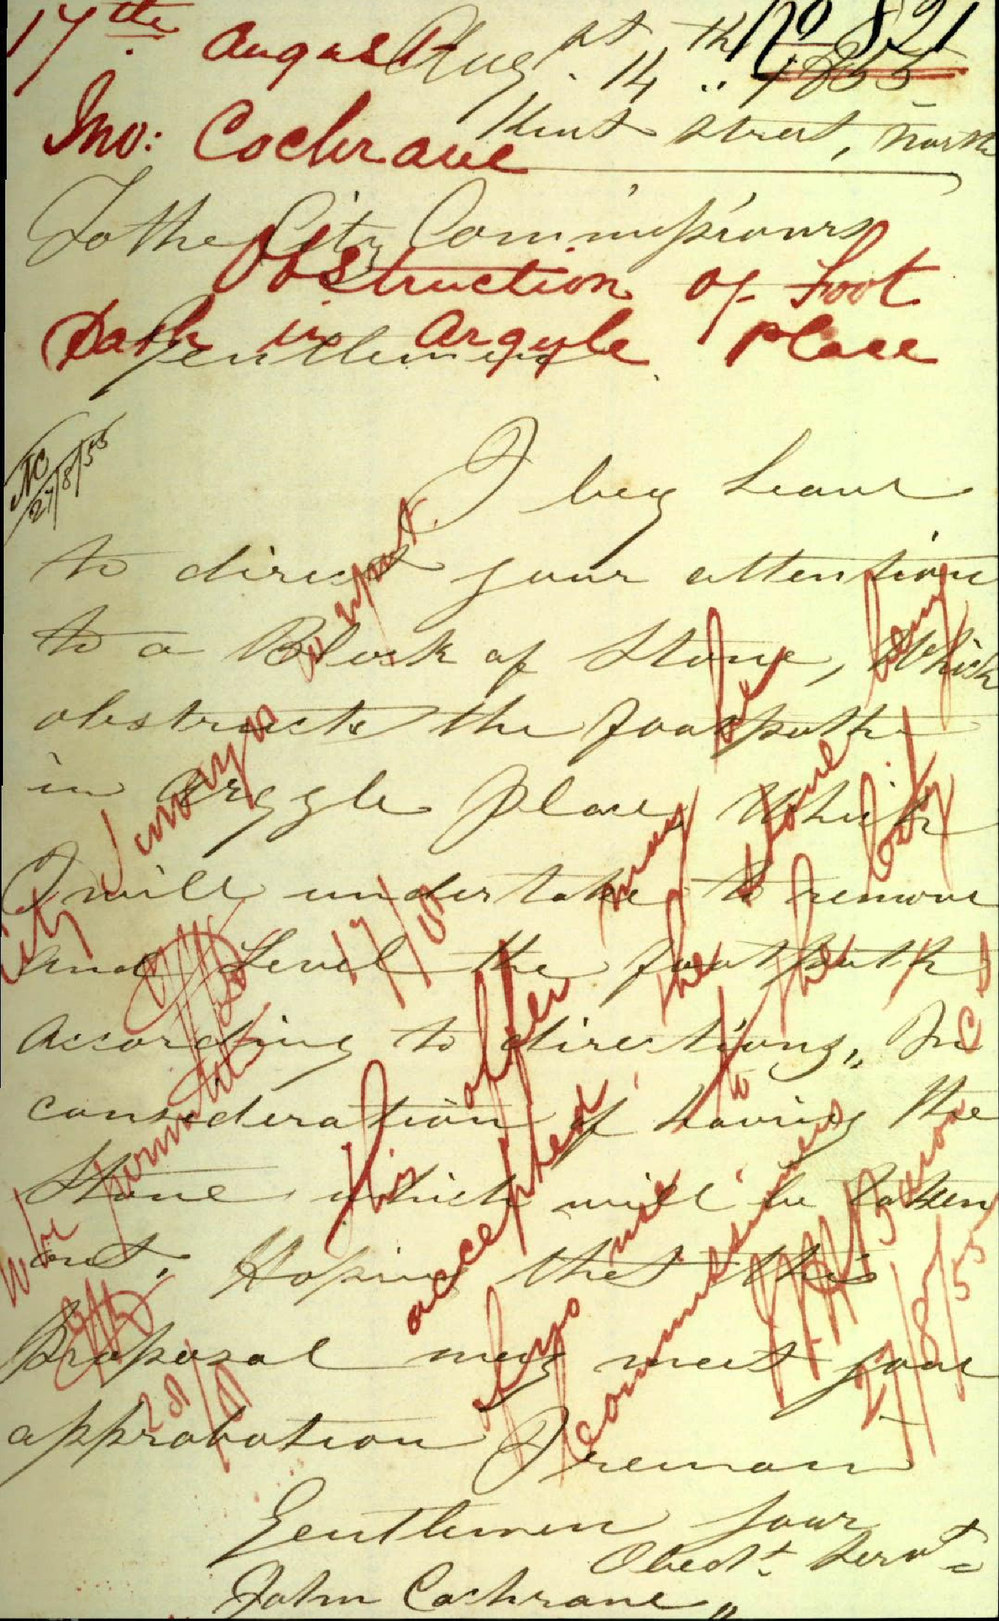 17th August
No 821
Augst 14th 1855
Jno: Cochrane
Kent Street, North
To the City Commissioners
Obstruction of Foot
Path in Argyle Place
Gentlemen
27/8/55
I beg Leave
to direct your attention
to a Block of Stone, Which
obstructs the footpath
in Argyle place, Which
I will undertake to remove
and Level the footpath
According to directions, In
consideration of having the
Stone which will be taken
out, Hoping that this
Proposal may meet your
approbation I remain
Gentlemen your
Obedt. Servt
John Cochrane
City Surveyor to report.
17/8
This offer may be
accepted, the stone being
of no use to the City
Commissioners
27/8/55
to be permitted
28/8